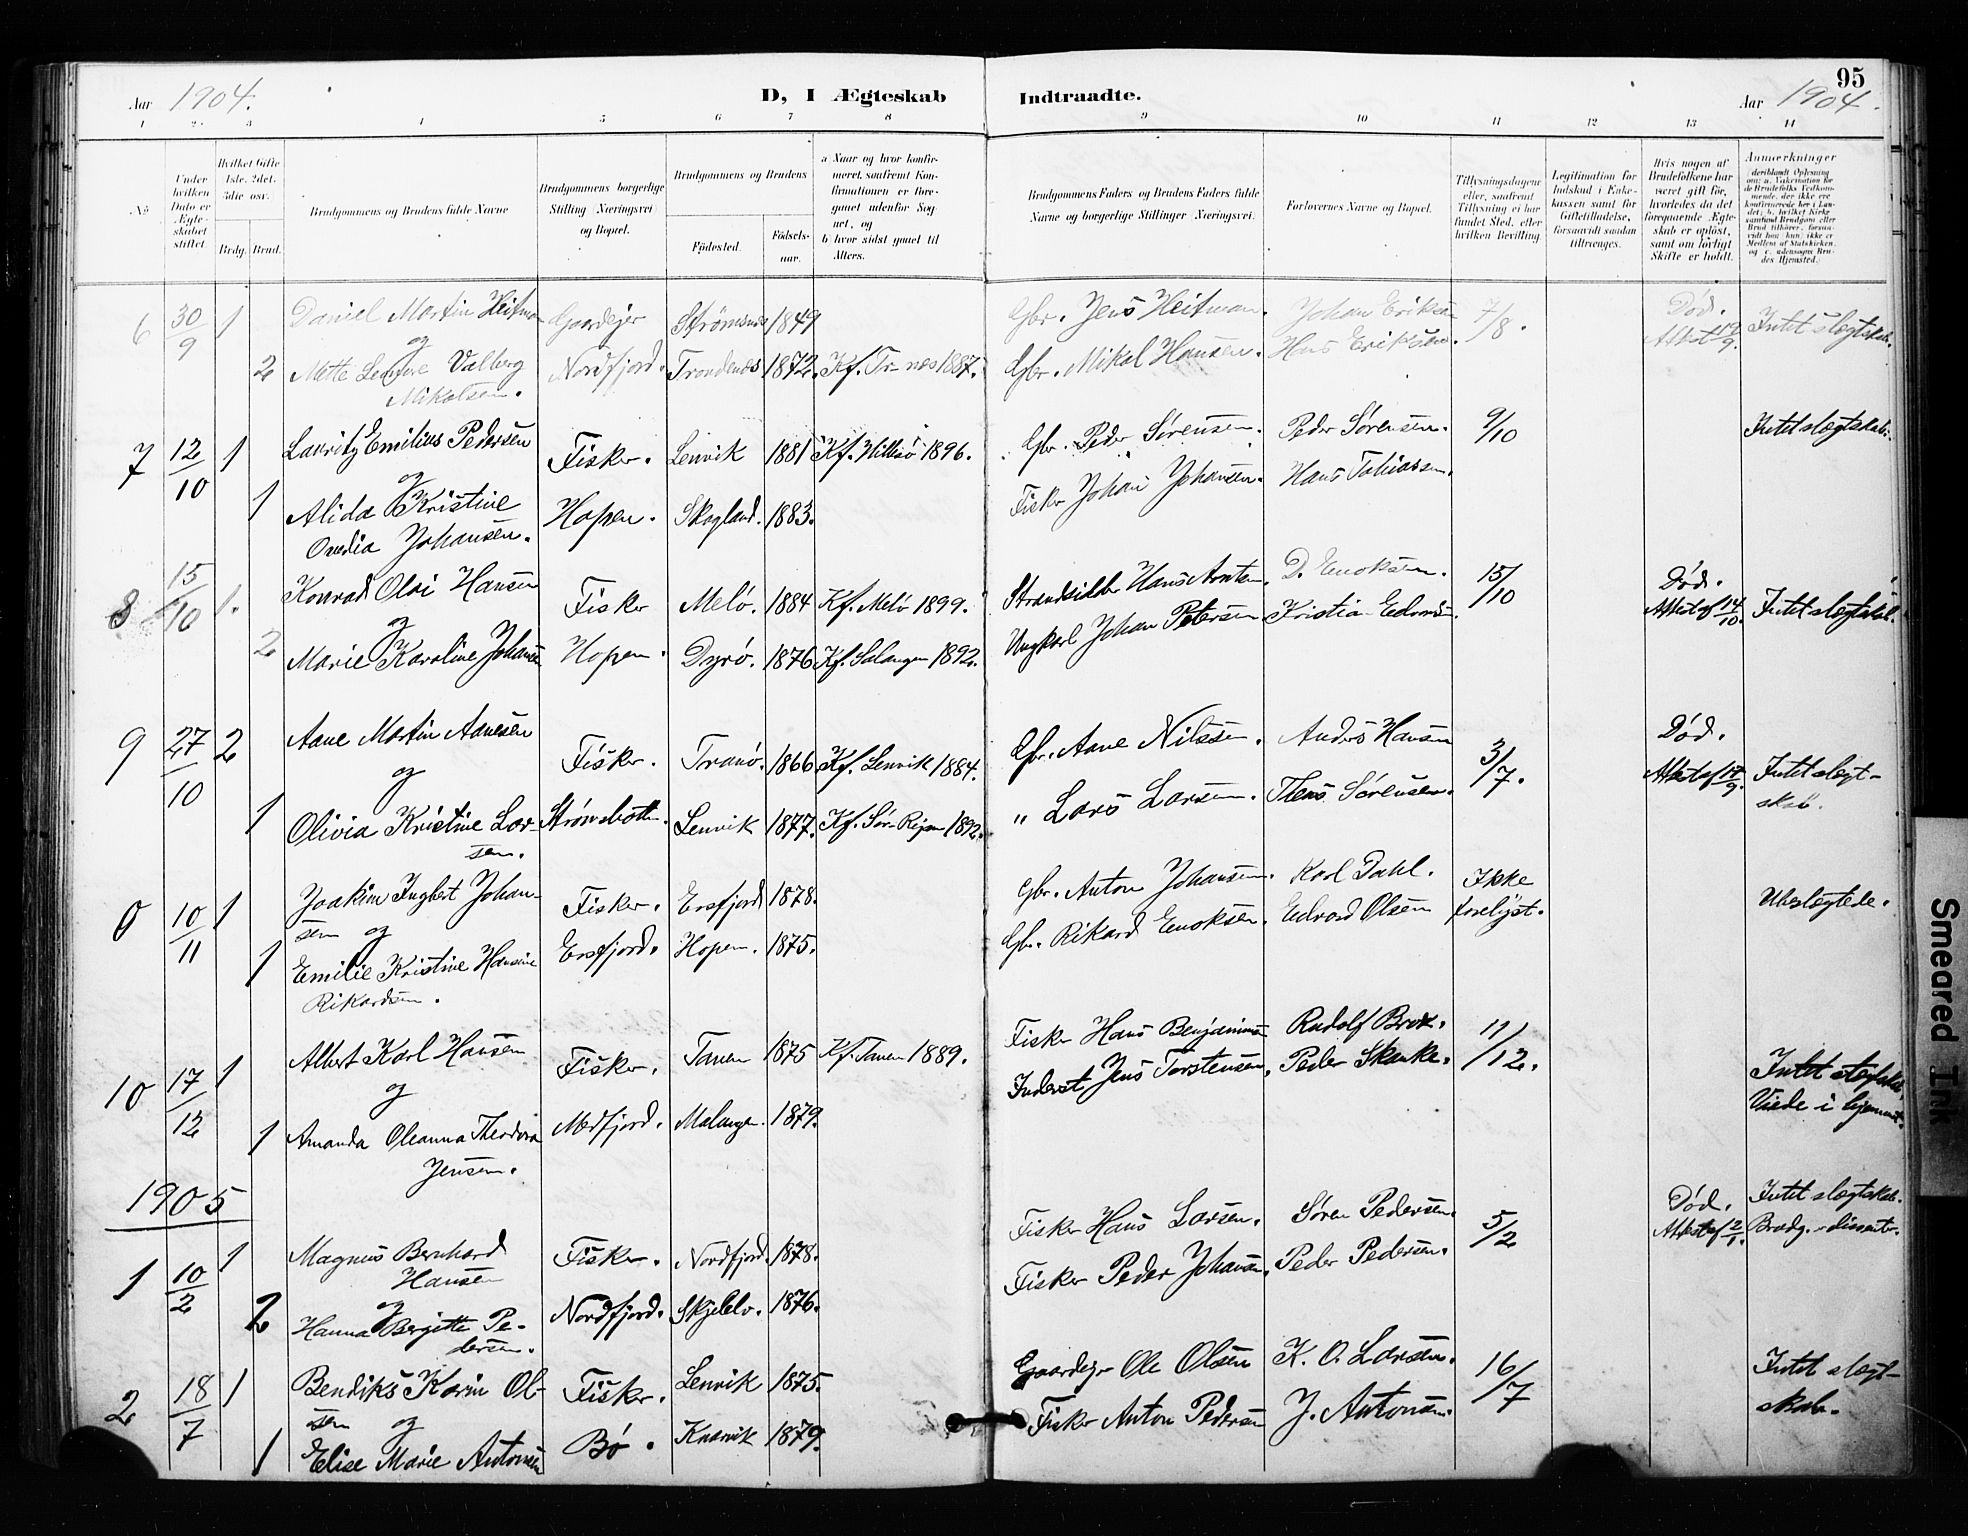 95
Aar 1904.
D, I Ægteskab Indtraadte.
Aar 1904.
1 2. 3 4 5 6 7 8 9 10 11 12 13 14
No
Under hvilken Dato er Ægteskabet stiftet.
Hvilket Gifte 1ste, 2det, 3die osv.
Brdg. Brud.
Brudgommens og Brudens fulde Navne
Brudgommens borgerlige Stilling (Næringsvei) og Bopæl.
Brudgommens og Brudens
Födested.
Födselsaar.
a) Naar og hvor konfirmeret, saafremt Konfirmationen er foregaaet udenfor Sognet, og
b) hvor sidst gaaet til Alters.
Brudgommens Faders og Brudens Faders fulde Navne og borgerlige Stillinger (Næringsvei).
Forlovernes Navne og Bopæl.
Tillysningsdagene eller, saafremt Tillysning ei har fundet Sted, efter hvilken Bevilling.
Legitimation for Indskud i Enkekassen samt for Giftetilladelse, forsaavidt saadan tiltrænges.
Hvis nogen af Brudefolkene har været gift för, hvorledes da det foregaaende Ægteskab er oplöst, samt om lovligt Skifte er holdt.
Anmerkninger
6 30/9 1 Daniel Martin Heitman Gaardejer Strømsnes 1849 Gbr. Jens Heitman. Johan Eriksen 7/8. Død. Intet slegtskab.
og
2 Mette Valberg Nordfjord. Trondenes 1872. Kf. Tr-nes 1887. Gbr. Mikal Hansen. Hans Eriksen. Attest 19/9.
Mikalsen.
7 12/10 1 Lauritz Emilius Pedersen Fisker. Lenvik 1881 Kf. Hillesö 1896. Gbr. Peder Sørensen. Peder Sørensen. 9/10 Intet slegtskab.
og
1 Alida Kristine Hopen. Skogland. 1883. Fisker Johan Johansen. Hans Tobiassen.
Ovedia Johansen.
8 15/10 1. Konrad Olai Hansen Fisker Melö. 1884 Kf. Melö 1899. Strandsidder Hans Arntsen. D. Enoksen. 15/10 Død. Intet slegtskab.
og
2 Marie Karoline Johansen Hopen. Dyrö. 1876 Kf. Salangen 1892. Ungkarl Johan Petersen Kristian Edvardsen. Attest af 14/10.
9 27/10 2 Aane Martin Aanesen Fisker. Tranö. 1866 Kf. Lenvik 1884. Gbr. Aane Nilssen. Anders Hansen 3/7. Død. Intet slegtskab.
og
1 Olivia Kristine Larsen. Strømsbotten. Lenvik 1877. Kf. Sør-Rejsen 1892. " Lars Larsen. Sørensen. Attest af 17/9.
0 10/11 1 Joakim Ingbert Johansen og Fisker. Ersfjord 1878. Gbr. Anton Johansen. Karl Dahl. Ikke forelyst. Ubeslegtede.
1 Emilie Kristine Hansine Ersfjord. Hopen. 1875. Gb. Rikard Enoksen. Edvard Olsen
Rikardsen.
10 17/12 1 Albert Karl Hansen Fisker. Tanen 1875 Kf. Tanen 1889. Fisker Hans Benjaminsen Rudolf Brox. 11/12. Intet slegtskab.
og
1 Amanda Oleanna Theodora Medfjord. Malangen. 1879. Inderst Jens Torstensen. Peder Skanke. Viede i hjemmet.
Jensen.
1905
1 10/2 1 Magnus Bernhard Fisker. Nordfjord. 1878. Fisker Hans Larsen. Søren Pedersen. 5/2 Død. Intet slegtskab.
Hansen
og
2 Hanna Bergitte Pedersen. Nordfjord. Skjelelv. 1876. Fisker Peder Johansen. Peder Pedersen. Attest af 2/1. Brudg. dissenter.
2 18/7 1 Bendiks Karin Olsen Fisker. Lenvik 1875. Gaardejer Ole Olsen K. O. Larsen. 16/7 Intet slegtskab.
og
1 Elise Marie Antonsen Bö. 1879. Fisker Anton Pedersen J. Antonsen.
Smeared Ink